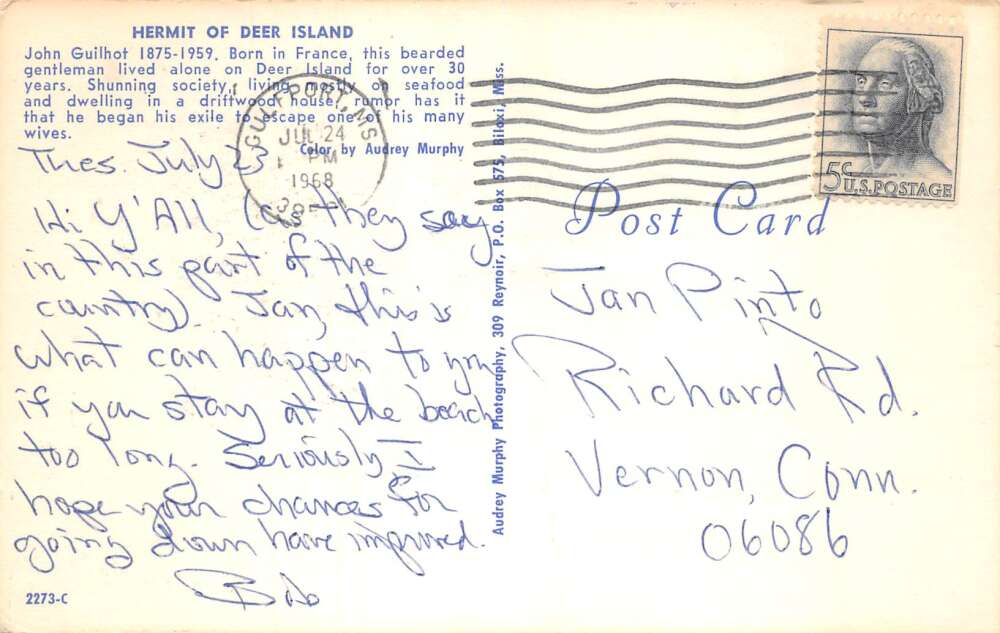 HERMIT OF DEER ISLAND
John Guilhot 1875-1959. Born in France, this bearded
gentleman lived alone on Deer Island for over 30
years. Shunning society, living mostly on seafood
and dwelling in a driftwood house, rumor has it
that he began his exile to escape one of his many
wives.
Color by Audrey Murphy
Tues. July 23
Hi Y'All, (as they say
in this part of the
country). Jan, this is
what can happen to you
if you stay at the beach
too long. Seriously, I
hope your chances for
going down have improved.
Bob
2273-C
Audrey Murphy Photography, 309 Reynoir, P.O. Box 575, Biloxi, Miss.
GULFPORT, MS
JUL 24
PM
1968
5c U.S. POSTAGE
Post Card
Jan Pinto
Richard Rd.
Vernon, Conn.
06086